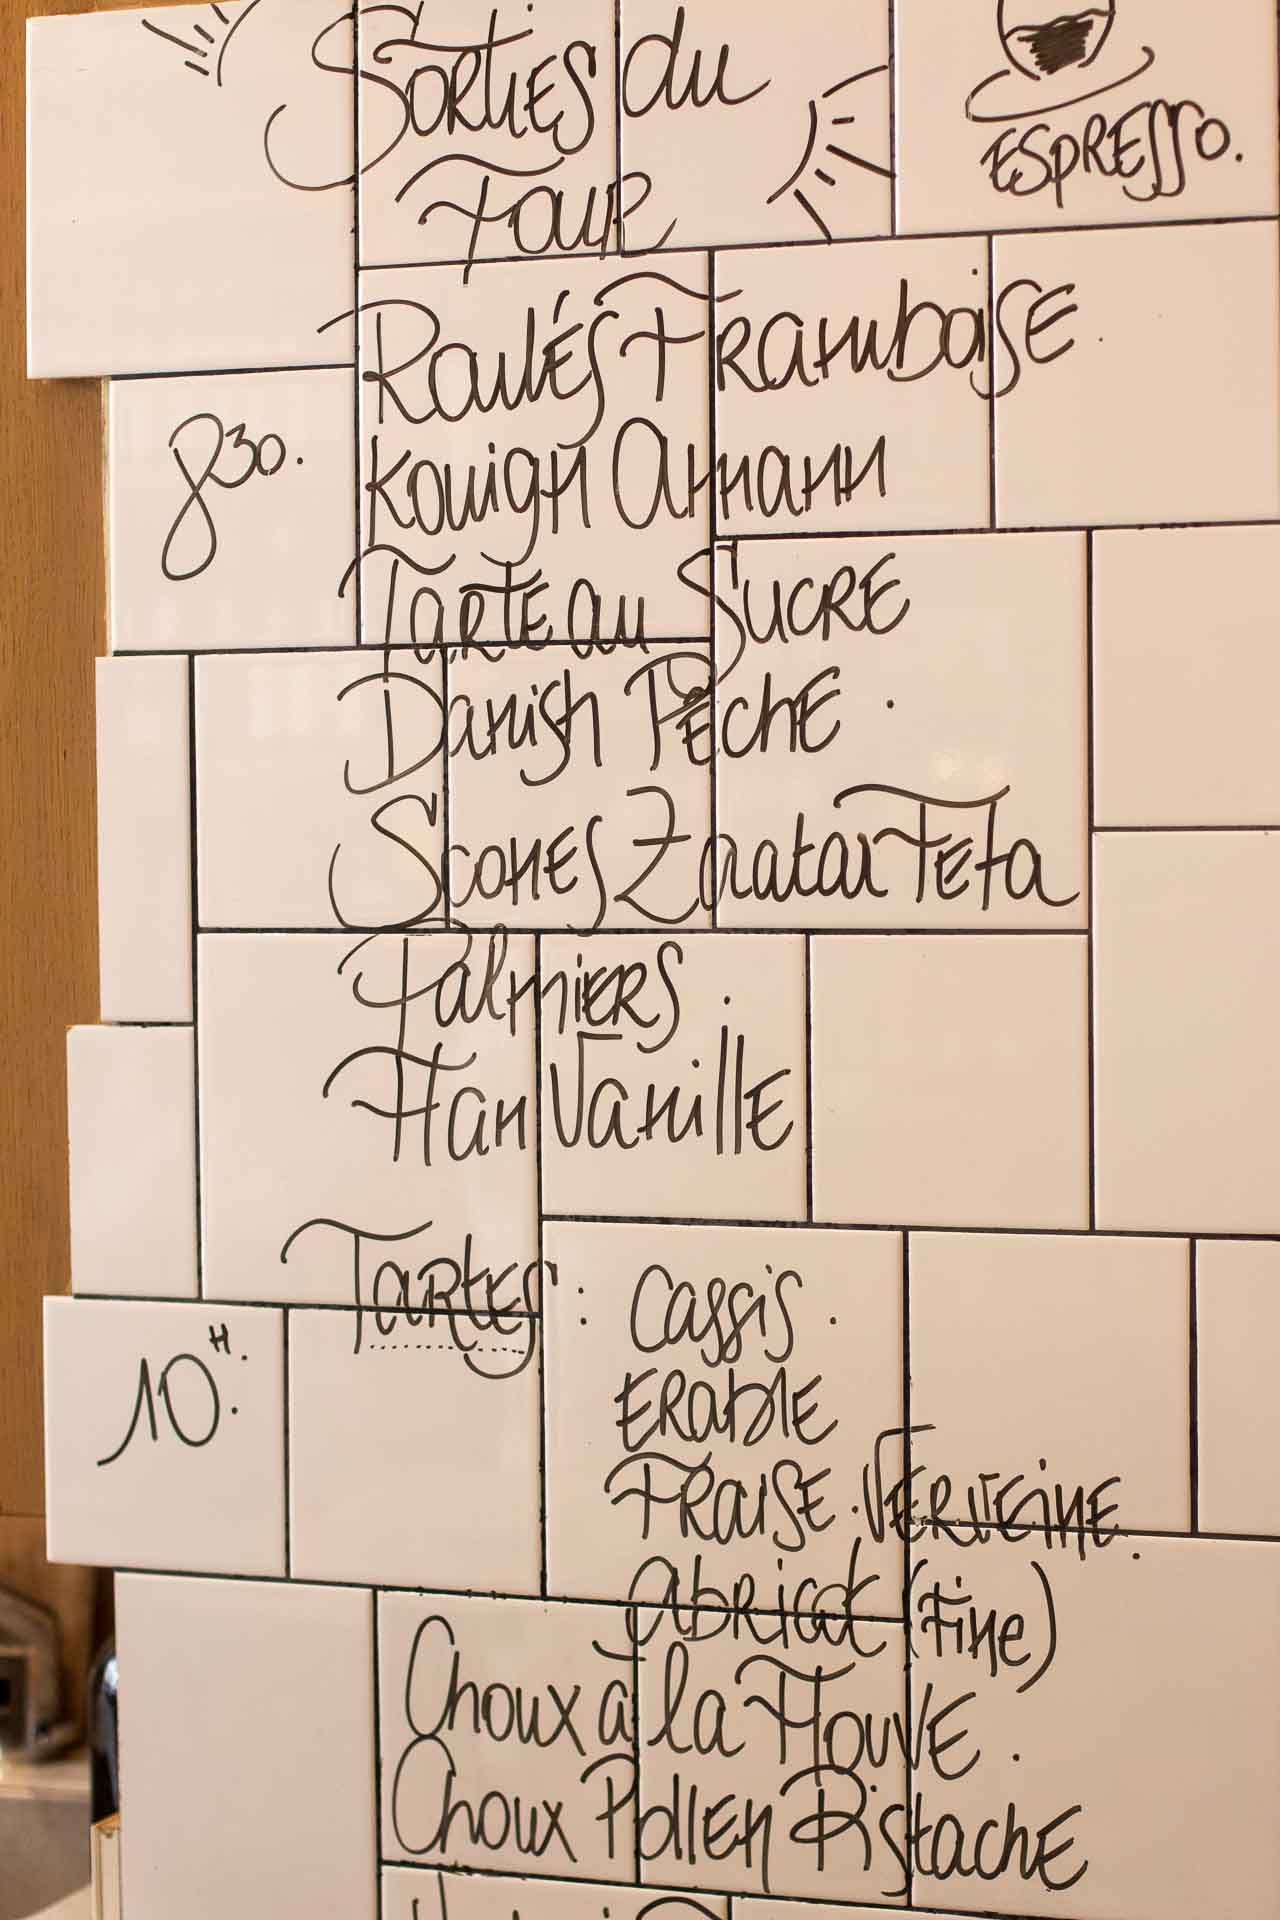 Sorties du
Four
ESPRESSO.
Roulés Framboise.
830.
Kouign Amann
Tarte au Sucre
Danish Pêche.
Scones Zaatar Feta
Palmiers.
Flan Vanille
Tartes: Cassis.
10H.
Erable
Fraise. Verveine.
abricot (Fine)
Choux à la Flouve.
Choux Pollen Pistache